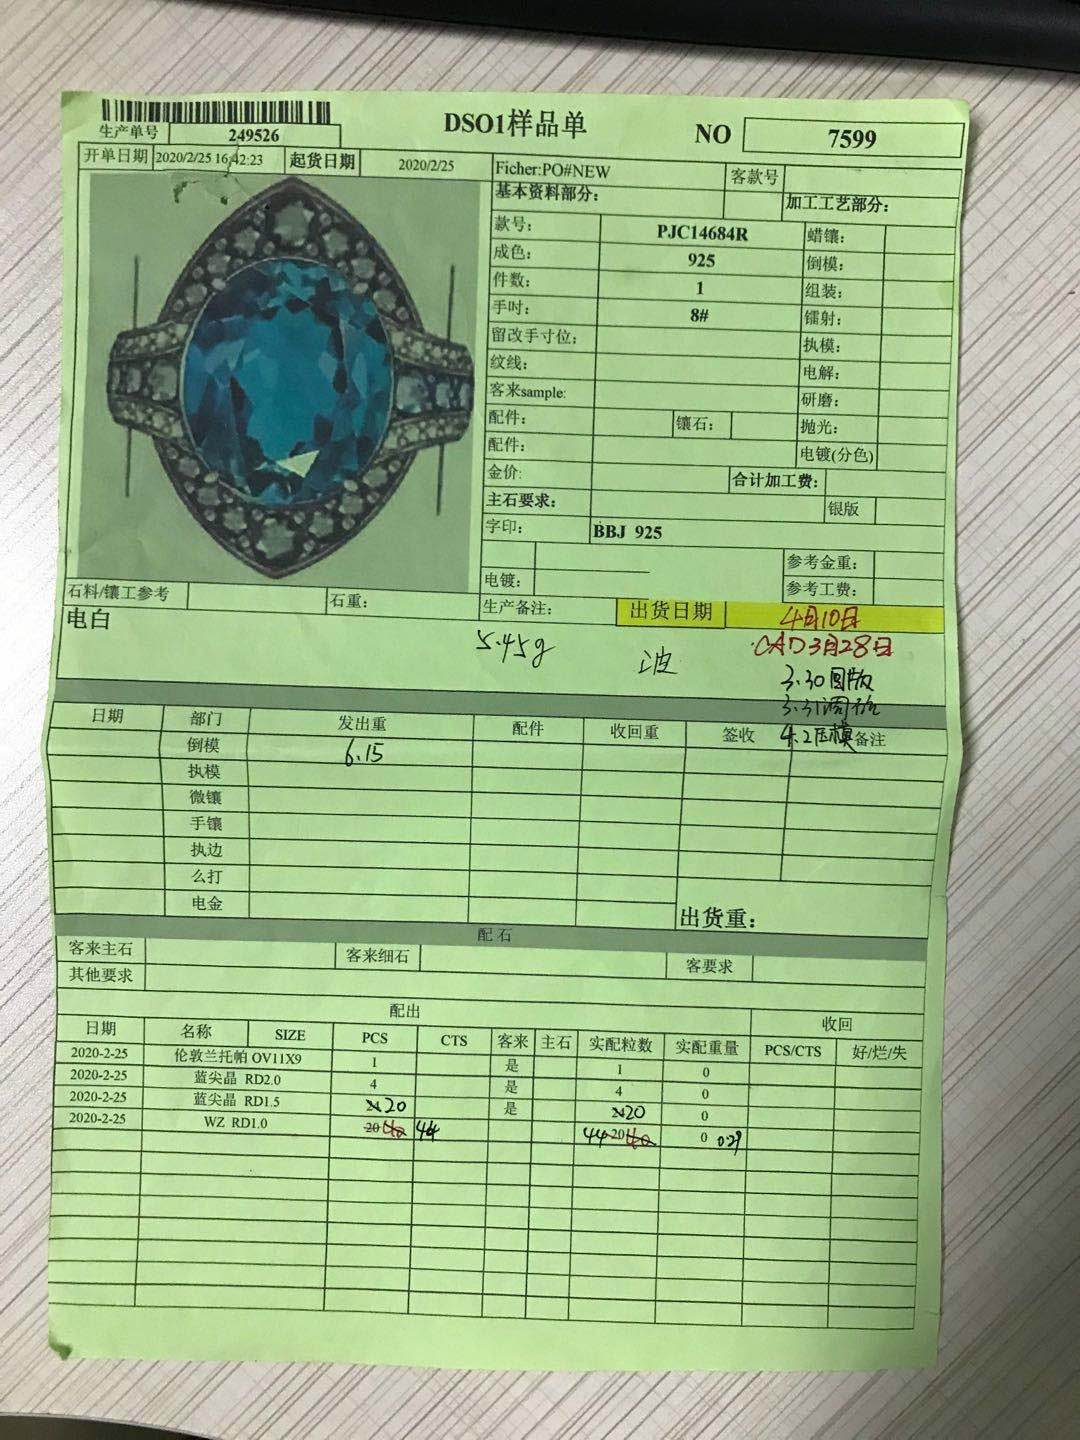 DSO1样品单
NO 7599
生产单号 249526
开单日期 2020/2/25 16:42:23 起货日期 2020/2/25
Ficher:PO#NEW 客款号
基本资料部分: 加工工艺部分:
款号: PJC14684R 蜡镶:
成色: 925 倒模:
件数: 1 组装:
手吋: 8# 镭射:
留改手寸位: 执模:
纹线: 电解:
客来sample: 研磨:
配件: 镶石: 抛光:
配件: 电镀(分色)
金价: 合计加工费:
主石要求: 银版
字印: BBJ 925
参考金重:
电镀: 参考工费:
石料/镶工参考 石重: 生产备注: 出货日期 4月10日
电白 5.45g 波 CAD3月28日
3.30图版
3.31
4.2压模
日期 部门 发出重 配件 收回重 签收 备注
倒模 6.15
执模
微镶
手镶
执边
么打
电金
出货重:
配石
客来主石 客来细石 客要求
其他要求
配出 收回
日期 名称 SIZE PCS CTS 客来 主石 实配粒数 实配重量 PCS/CTS 好/烂/失
2020-2-25 伦敦兰托帕 OV11X9 1 是 1 0
2020-2-25 蓝尖晶 RD2.0 4 是 4 0
2020-2-25 蓝尖晶 RD1.5 20 是 20 0
2020-2-25 WZ RD1.0 20 40 44 44 20 40 0 0.29